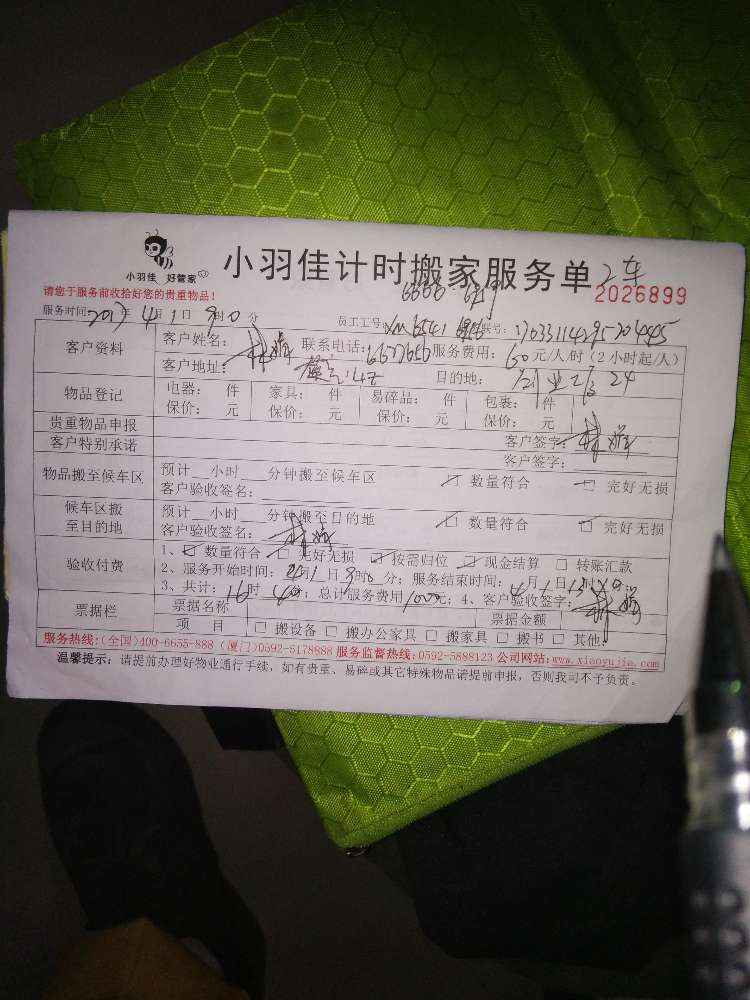 小羽佳 好管家
小羽佳计时搬家服务单 2车
请您于服务前收拾好您的贵重物品！
2026899
服务时间：2017年4月1日9时0分 员工工号：xm6541 联号：
客户资料 客户姓名：林 联系电话： 服务费用：60元/人/时（2小时起/人）
客户地址： 目的地：
物品登记 电器： 件 家具： 件 易碎品： 件 包裹： 件
保价： 元 保价： 元 保价： 元 保价： 元
贵重物品申报 客户签字：林
客户特别承诺 客户签字：
物品搬至候车区 预计__小时__分钟搬至候车区 数量符合 完好无损
客户验收签名：
候车区搬至目的地 预计__小时__分钟搬至目的地 数量符合 完好无损
客户验收签名：林
验收付费 1、□ 数量符合 □ 完好无损 □ 按需归位 □ 现金结算 □ 转账汇款
2、服务开始时间：4月1日9时0分；服务结束时间：4月1日13时 分；
3、共计：16时40分；总计服务费用1000元；4、客户验收签字：林
票据栏 票据名称 票据金额
项 目 □ 搬设备 □ 搬办公家具 □ 搬家具 □ 搬书 □ 其他：
服务热线：（全国）400-6655-888（厦门）0592-6178888 服务监督热线：0592-5888123 公司网站：www.xiaoyujia.com
温馨提示：请提前办理好物业通行手续，如有贵重、易碎或其它特殊物品请提前申报，否则我司不予负责。